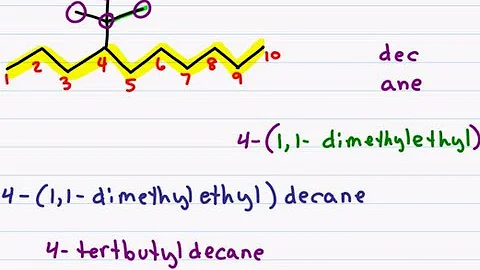 1 2 3 4 5 6 7 8 9 10
dec
ane
4-(1,1- dimethylethyl)
4-(1,1-dimethylethyl) decane
4-tertbutyldecane